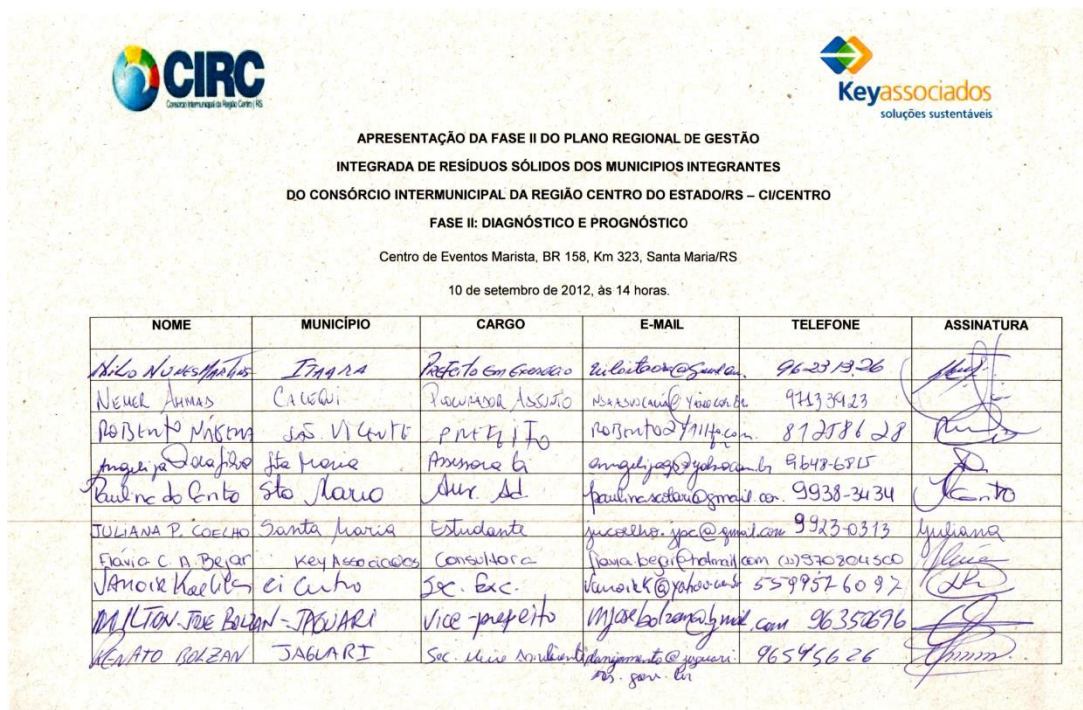 CIRC
Consórcio Intermunicipal da Região Centro | RS
Keyassociados
soluções sustentáveis
APRESENTAÇÃO DA FASE II DO PLANO REGIONAL DE GESTÃO
INTEGRADA DE RESÍDUOS SÓLIDOS DOS MUNICIPIOS INTEGRANTES
DO CONSÓRCIO INTERMUNICIPAL DA REGIÃO CENTRO DO ESTADO/RS – CI/CENTRO
FASE II: DIAGNÓSTICO E PROGNÓSTICO
Centro de Eventos Marista, BR 158, Km 323, Santa Maria/RS
10 de setembro de 2012, às 14 horas.
NOME MUNICÍPIO CARGO E-MAIL TELEFONE ASSINATURA
NUNES MARTINS ITAARA PREFEITO EM EXERCÍCIO 96-231926
NEMER AHMAD CACEQUI 97133423
ROBERTO S. VICENTE PREFEITO 81258628
Sta Maria Assessora 9648-6815
Pauline do Canto Sta Maria Aux. Ad. 9938-3434
JULIANA P. COELHO Santa Maria Estudante jucoelho.jpc@gmail.com 9923-0313 Juliana
Flávia C. A. Bejar Key Associados Consultora (11)970204500 Flávia
ci Centro Sec. Exc. 5599576097
MILTON JOSE BOLZAN - JAGUARI Vice-prefeito 96350696
RENATO BOLZAN JAGUARI Sec. Meio Ambiente planejamento@jaguari. 96545626
rs.gov.br